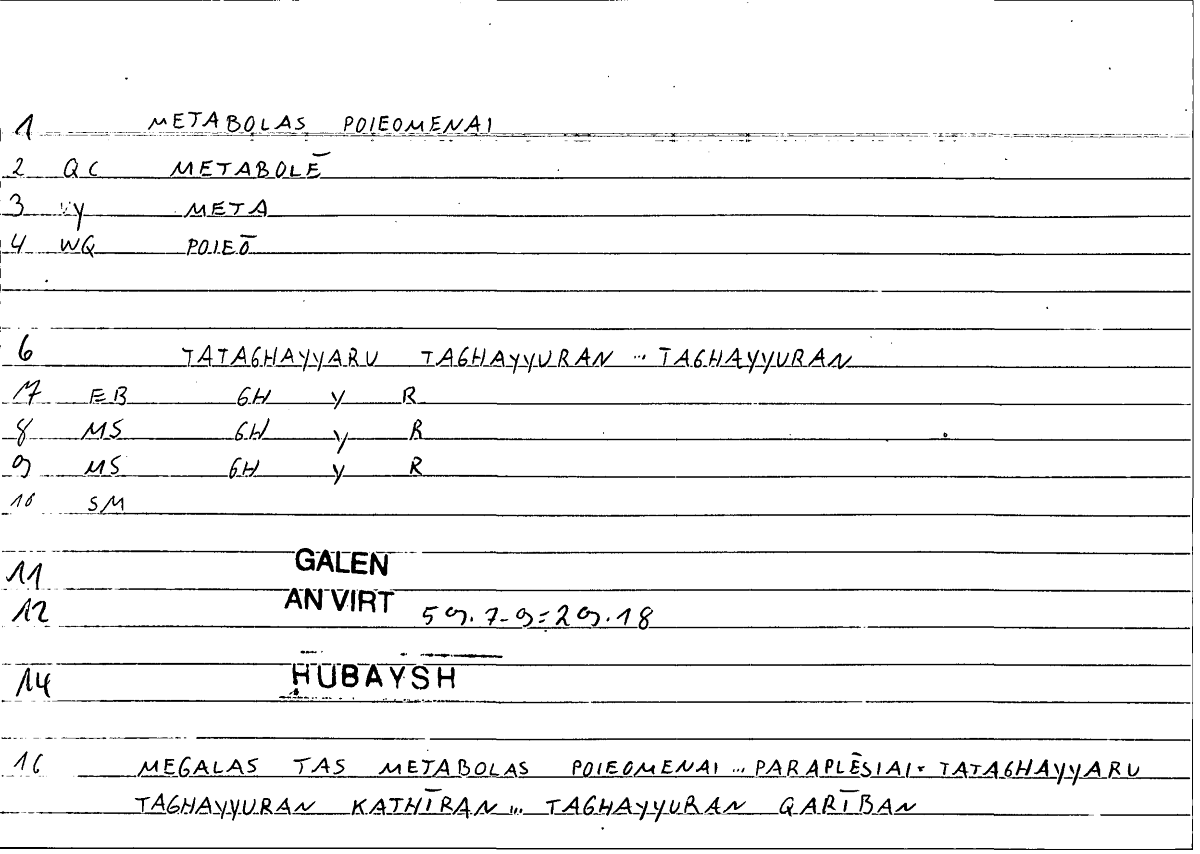 1 METABOLAS POIEOMENAI
2 QC METABOLĒ
3 VY META
4 WQ POIEŌ
6 TATAGHAYYARU TAGHAYYURAN ... TAGHAYYURAN
7 EB GH Y R
8 MS GH Y R
9 MS GH Y R
10 SM
11 GALEN
12 AN VIRT 59.7-9=29.18
14 ḤUBAYSH
16 MEGALAS TAS METABOLAS POIEOMENAI ... PARAPLĒSIAI = TATAGHAYYARU
TAGHAYYURAN KATHĪRAN ... TAGHAYYURAN QARĪBAN